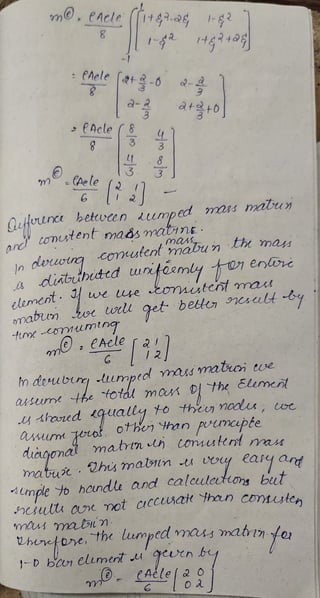 m^ⓔ = ρAele/8 ∫_{-1}^{1} [1+ξ²-2ξ 1-ξ²
1-ξ² 1+ξ²+2ξ]
= ρAele/8 [2+2/3-0 2-2/3
2-2/3 2+2/3+0]
= ρAele/8 [8/3 4/3
4/3 8/3]
m^ⓔ = ρAele/6 [2 1
1 2]
Difference between lumped mass matrix
and consistent mass matrix.
In deriving consistent mass matrix the mass
is distributed uniformly for entire
element. If we use consistent mass
matrix we will get better result by
time consuming
m^ⓔ = ρAele/6 [2 1
1 2]
In deriving lumped mass matrix we
assume the total mass of the Element
is shared equally to their nodes, we
assume zeros other than
diagonal matrix in consistent mass
matrix. This matrix is very easy and
simple to handle and calculations but
results are not accurate than consisten
mass matrix.
Therefore, the lumped mass matrix for
1-D bar element is given by
m^ⓔ = ρAele/6 [2 0
0 2]